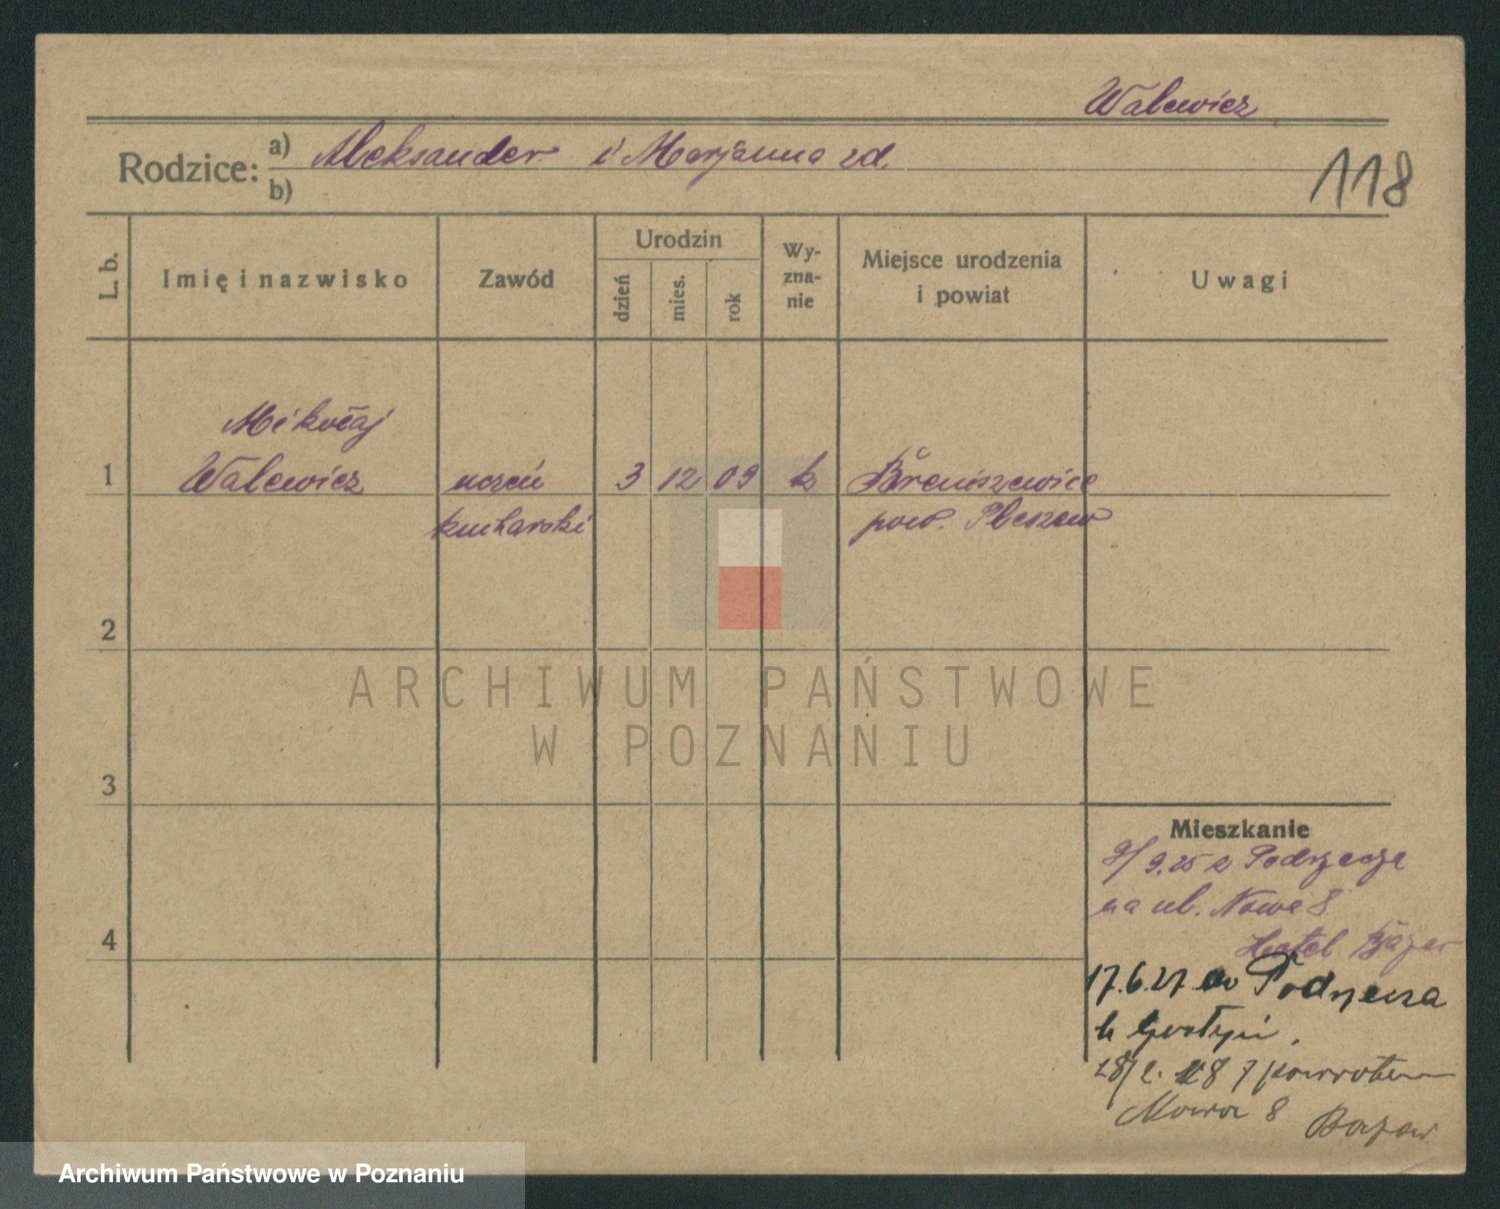 Walewicz
Rodzice: a) Aleksander i Marjanna zd.
b)
118
L. b.
Imię i nazwisko
Zawód
Urodzin
dzień
mies.
rok
Wy-
zna-
nie
Miejsce urodzenia
i powiat
Uwagi
Mikołaj
1 Walewicz uczeń 3 12 09 k Broniszewice
kucharski pow. Pleszew
2
3
4
Mieszkanie
9/9.25 z Podrzecza
na ul. Nowa 8
Hotel Bazar
17.6.27 do Podrzecza
k Gostyni.
28/2. 28 z powrotem
Nowa 8 Bazar
ARCHIWUM PAŃSTWOWE
W POZNANIU
Archiwum Państwowe w Poznaniu